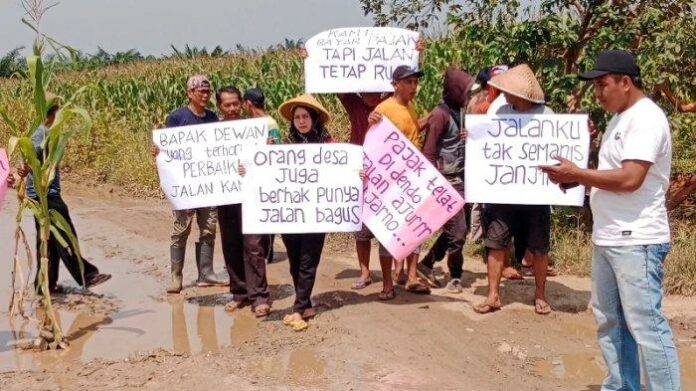 KAMI
BAYAR PAJAK
TAPI JALAN
TETAP RU
BAPAK DEWAN
yang terhor
PERBAIK
JALAN KAM
ORANG DESA
JUGA
berhak Punya
Jalan BAGUS
Pajak telat
Di dendo
Jalan ajurrr
Jarno...
JALANKU
tak SEMANIS
JANJI